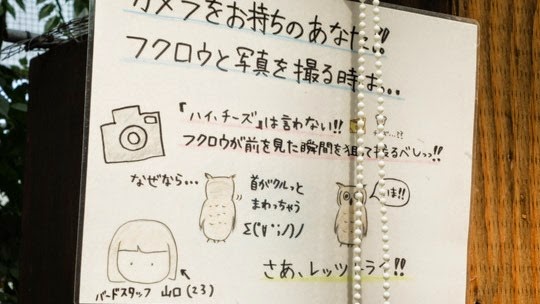 カメラをお持ちのあなた!!
フクロウと写真を撮る時は、..
『ハイ、チーズ』は言わない!!
フクロウが前を見た瞬間を狙って撮るべしっっ!!
なぜなら...
首がクルっと
まわっちゃう
Σ(゚∀゚;ノ)ノ
は!!
さあ、レッツトライ!!
バードスタッフ 山口(23)